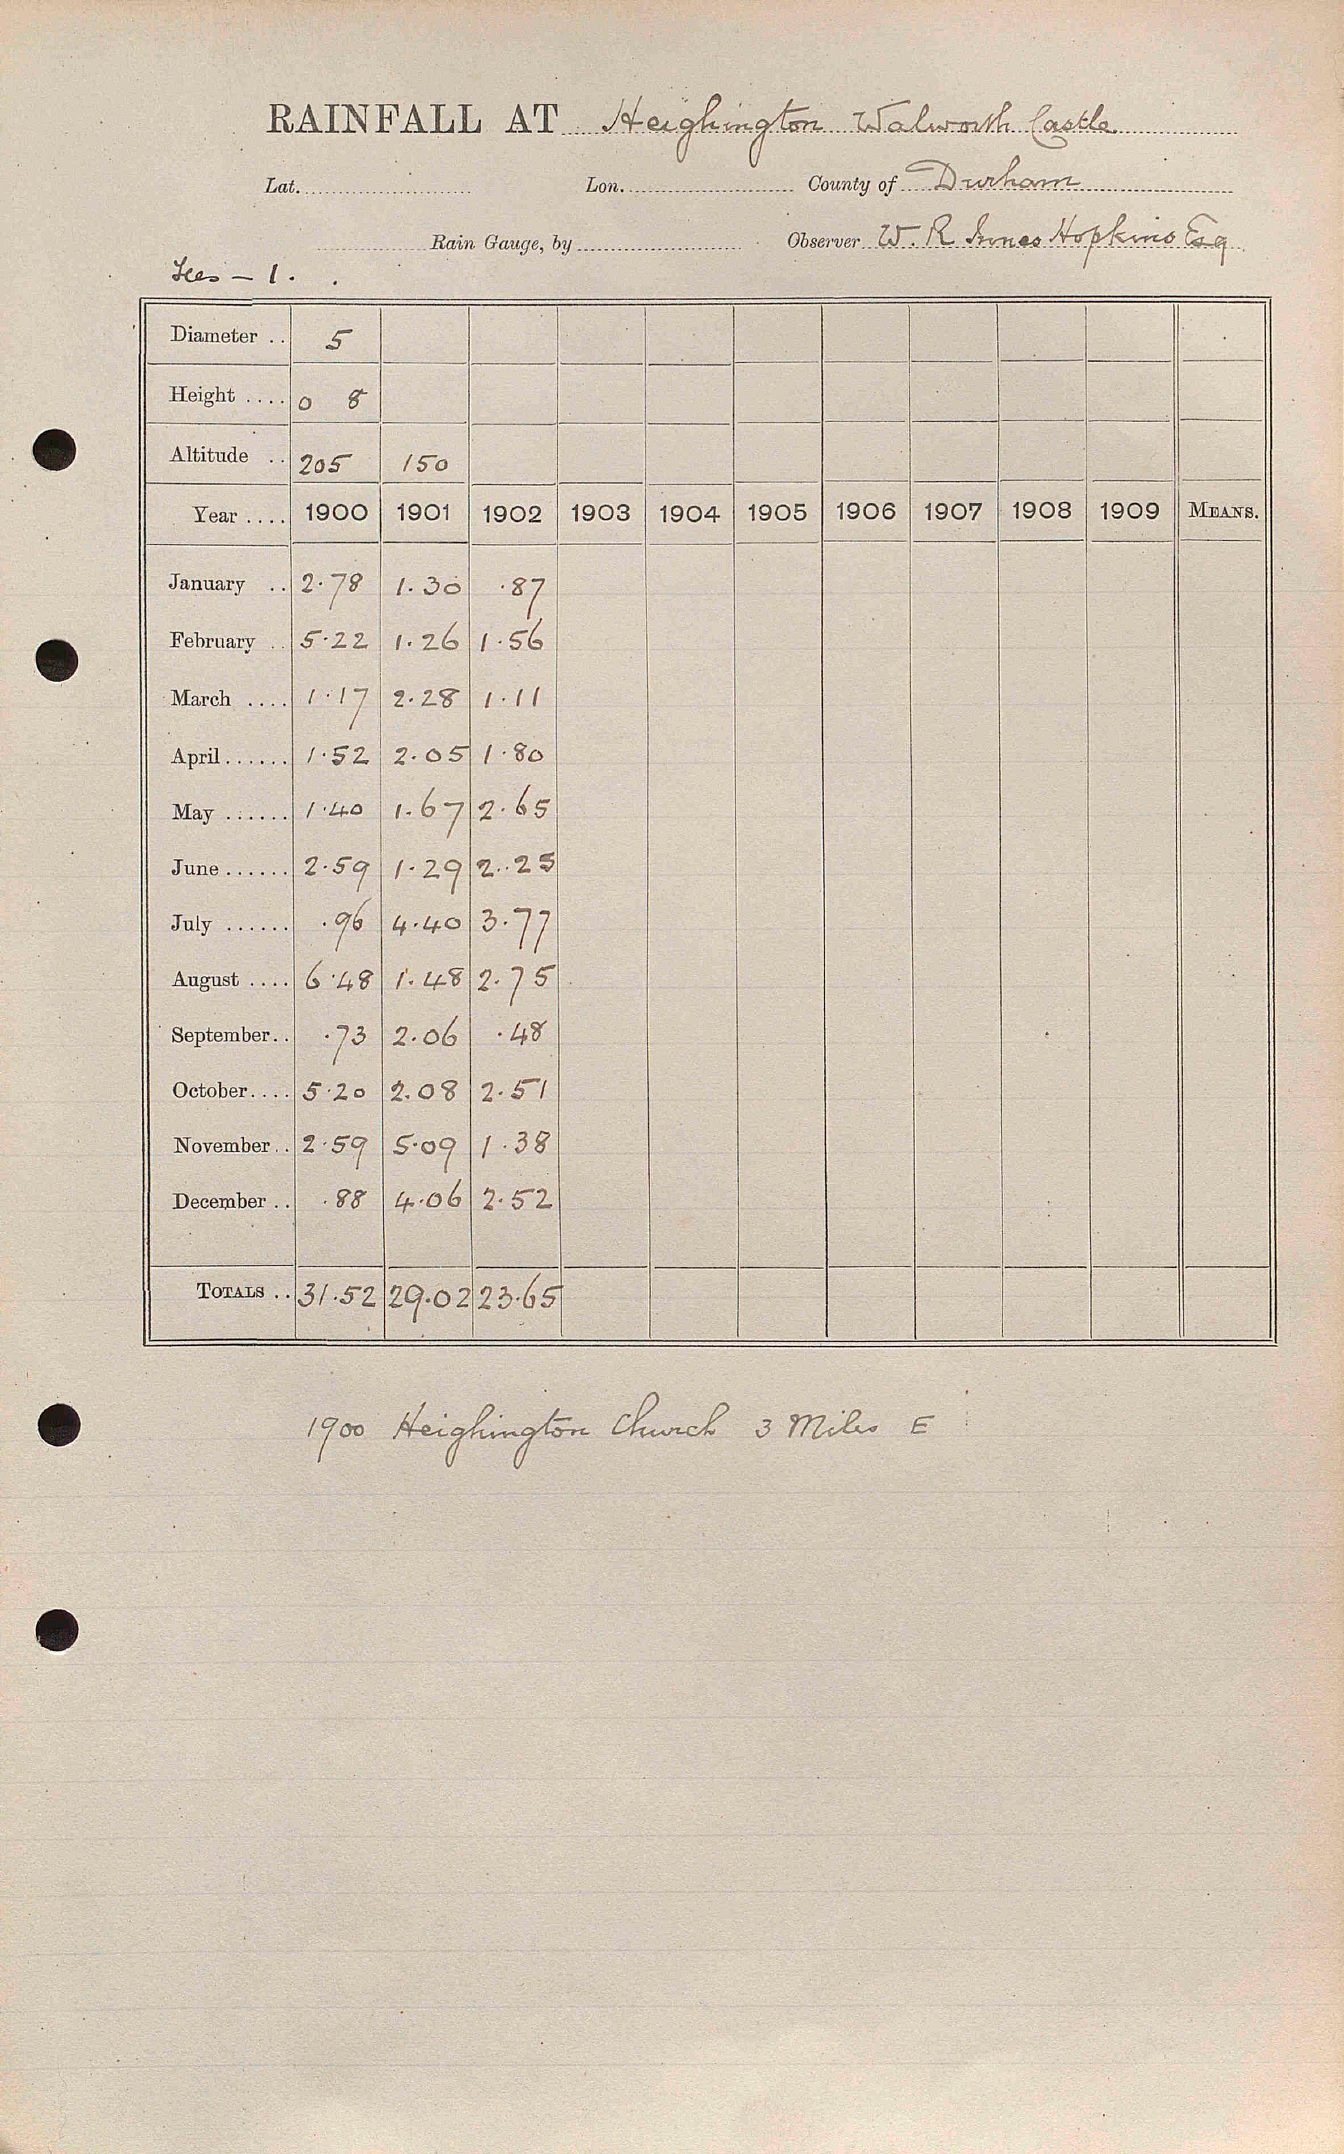 RAINFALL AT Heighington Walworth Castle
Lat. Lon. County of Durham
Rain Gauge, by Observer W. R Innes Hopkins Esq
Tees - 1.
Diameter .. 5
Height .... 0 8
Altitude .. 205 150
Year .... 1900 1901 1902 1903 1904 1905 1906 1907 1908 1909 MEANS.
January .. 2.78 1.30 .87
February .. 5.22 1.26 1.56
March .... 1.17 2.28 1.11
April...... 1.52 2.05 1.80
May ...... 1.40 1.67 2.65
June...... 2.59 1.29 2.25
July ...... .96 4.40 3.77
August .... 6.48 1.48 2.75
September.. .73 2.06 .48
October.... 5.20 2.08 2.51
November.. 2.59 5.09 1.38
December .. .88 4.06 2.52
TOTALS .. 31.52 29.02 23.65
1900 Heighington Church 3 Miles E